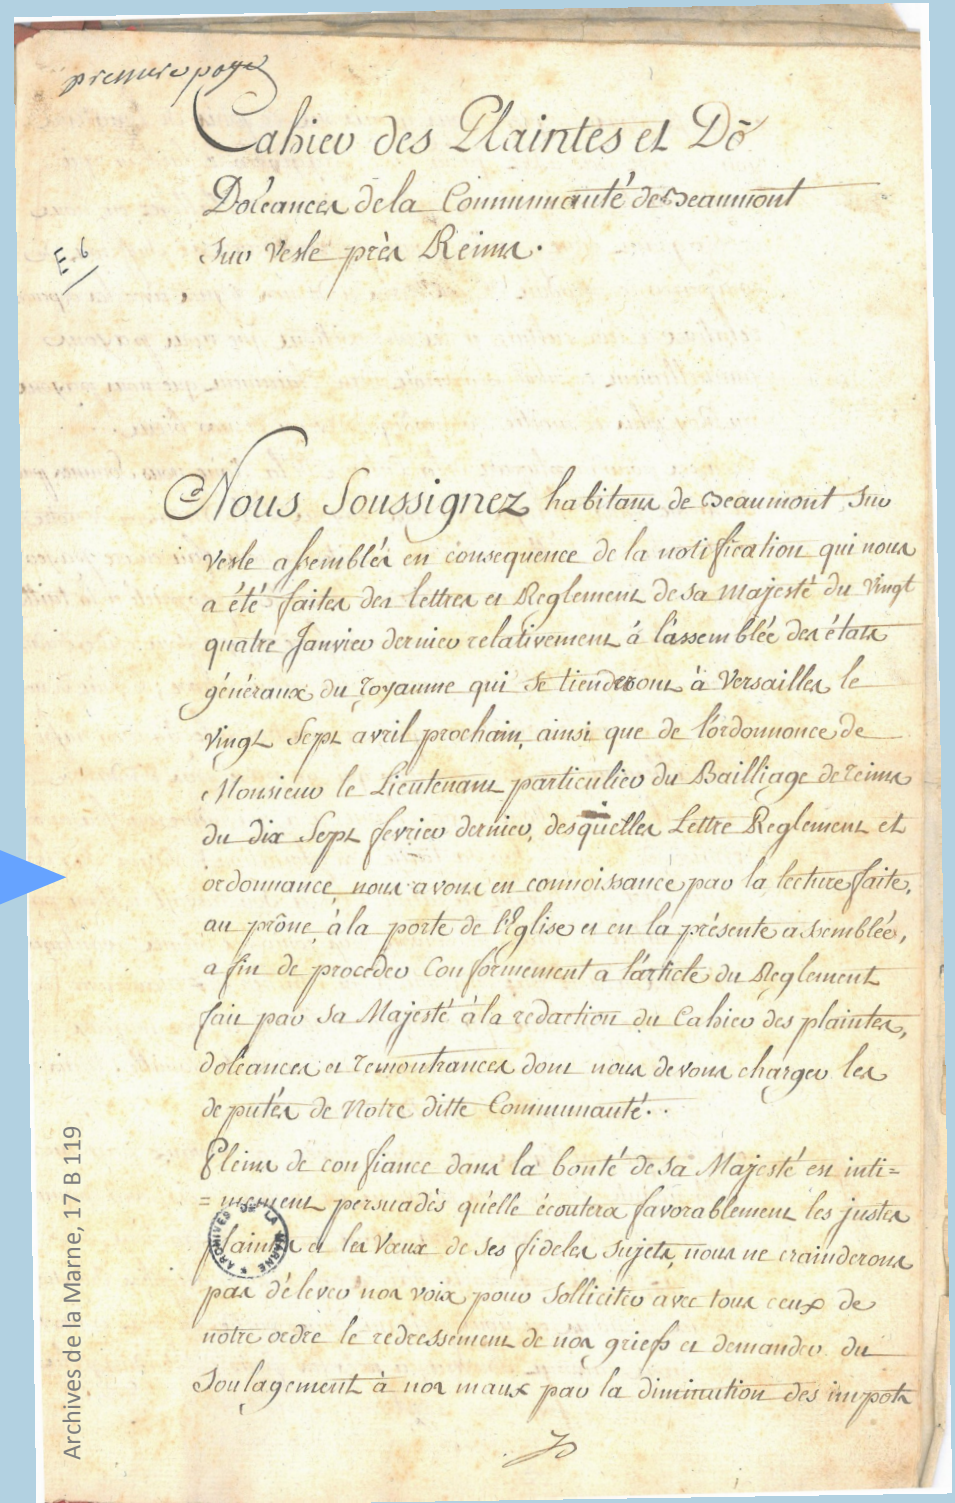 premiere page
Cahier des Plaintes et Dō
Doléances de la Communauté de Beaumont
Sur Vesle près Reims.
E. 6
Nous Soussignez habitans de Beaumont Sur
Vesle assemblés en consequence de la notification qui nous
a été faites des lettres et Reglement de sa majesté du vingt
quatre Janvier dernier relativement á l'assemblée des états
généraux du royaume qui se tienderont à Versailles le
vingt Sept avril prochain, ainsi que de l'ordonnonce de
Monsieur le Lieutenant particulier du Bailliage de reims
du dix Sept fevrier dernier, desquelles Lettre Reglement et
ordonnance nous avons en connoissance par la lecture faite,
au prône, à la porte de l'Eglise et en la présente assemblée,
afin de proceder Conformement a l'article du Reglement
fait par Sa Majesté à la redaction du Cahier des plaintes,
doléances et remontrances dont nous devons charger les
deputés de Notre ditte Communauté..
Pleins de confiance dans la bonté de Sa Majesté et inti=
=mement persuadès qu'elle écoutera favorablement les justes
plaintes et les Vœux de ses fideles sujets, nous ne crainderons
pas d'élever nos voix pour solliciter avec tous ceux de
notre ordre le redressement de nos griefs et demander du
Soulagement à nos maux par la diminution des impots
ARCHIVES DE LA MARNE
Archives de la Marne, 17 B 119